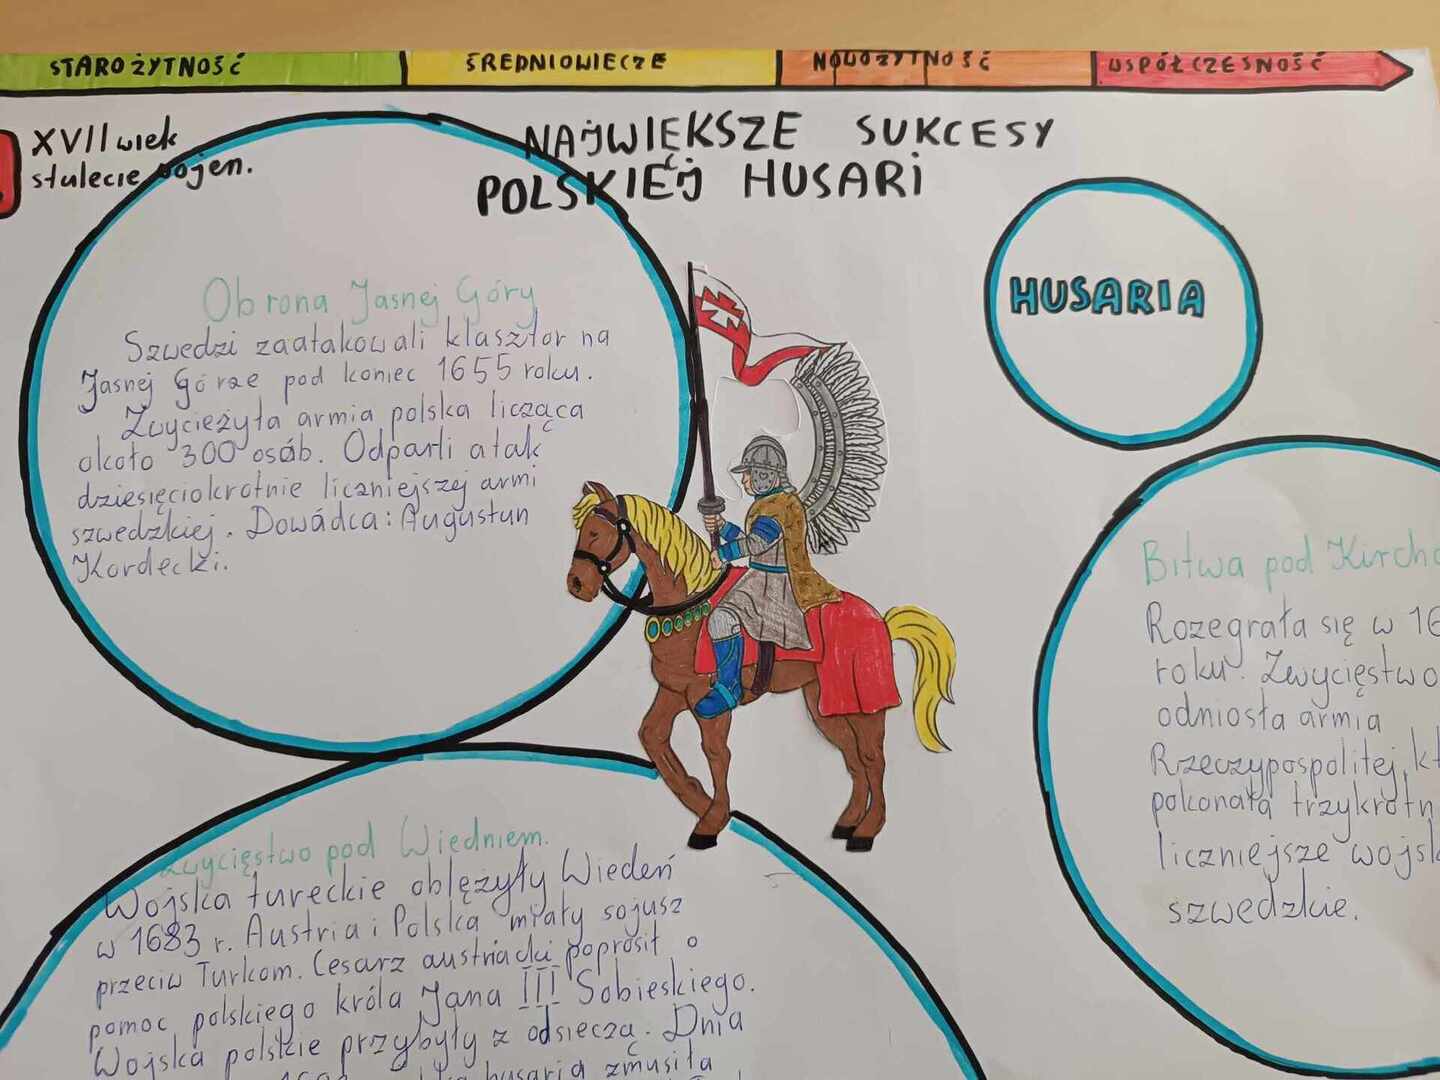 STAROŻYTNOŚĆ
ŚREDNIOWIECZE
NOWOŻYTNOŚĆ
WSPÓŁCZESNOŚĆ
XVII wiek
stulecie wojen.
NAJWIĘKSZE SUKCESY
POLSKIEJ HUSARI
HUSARIA
Obrona Jasnej Góry
Szwedzi zaatakowali klasztor na
Jasnej Górze pod koniec 1655 roku.
Zwyciężyła armia polska licząca
około 300 osób. Odparli atak
dziesięciokrotnie liczniejszej armi
szwedzkiej. Dowódca: Augustun
Kordecki.
Bitwa pod
Rozegrała się w
roku. Zwycięstwo
odniosła armia
Rzeczypospolitej,
pokonała
liczniejsze
szwedzkie.
Zwycięstwo pod Wiedniem.
Wojska tureckie oblężyły Wiedeń
w 1683 r. Austria i Polska miały sojusz
przeciw Turkom. Cesarz austriacki poprosił o
pomoc polskiego króla Jana III Sobieskiego.
Wojska polskie przybyły z odsieczą. Dnia
husaria zmusiła